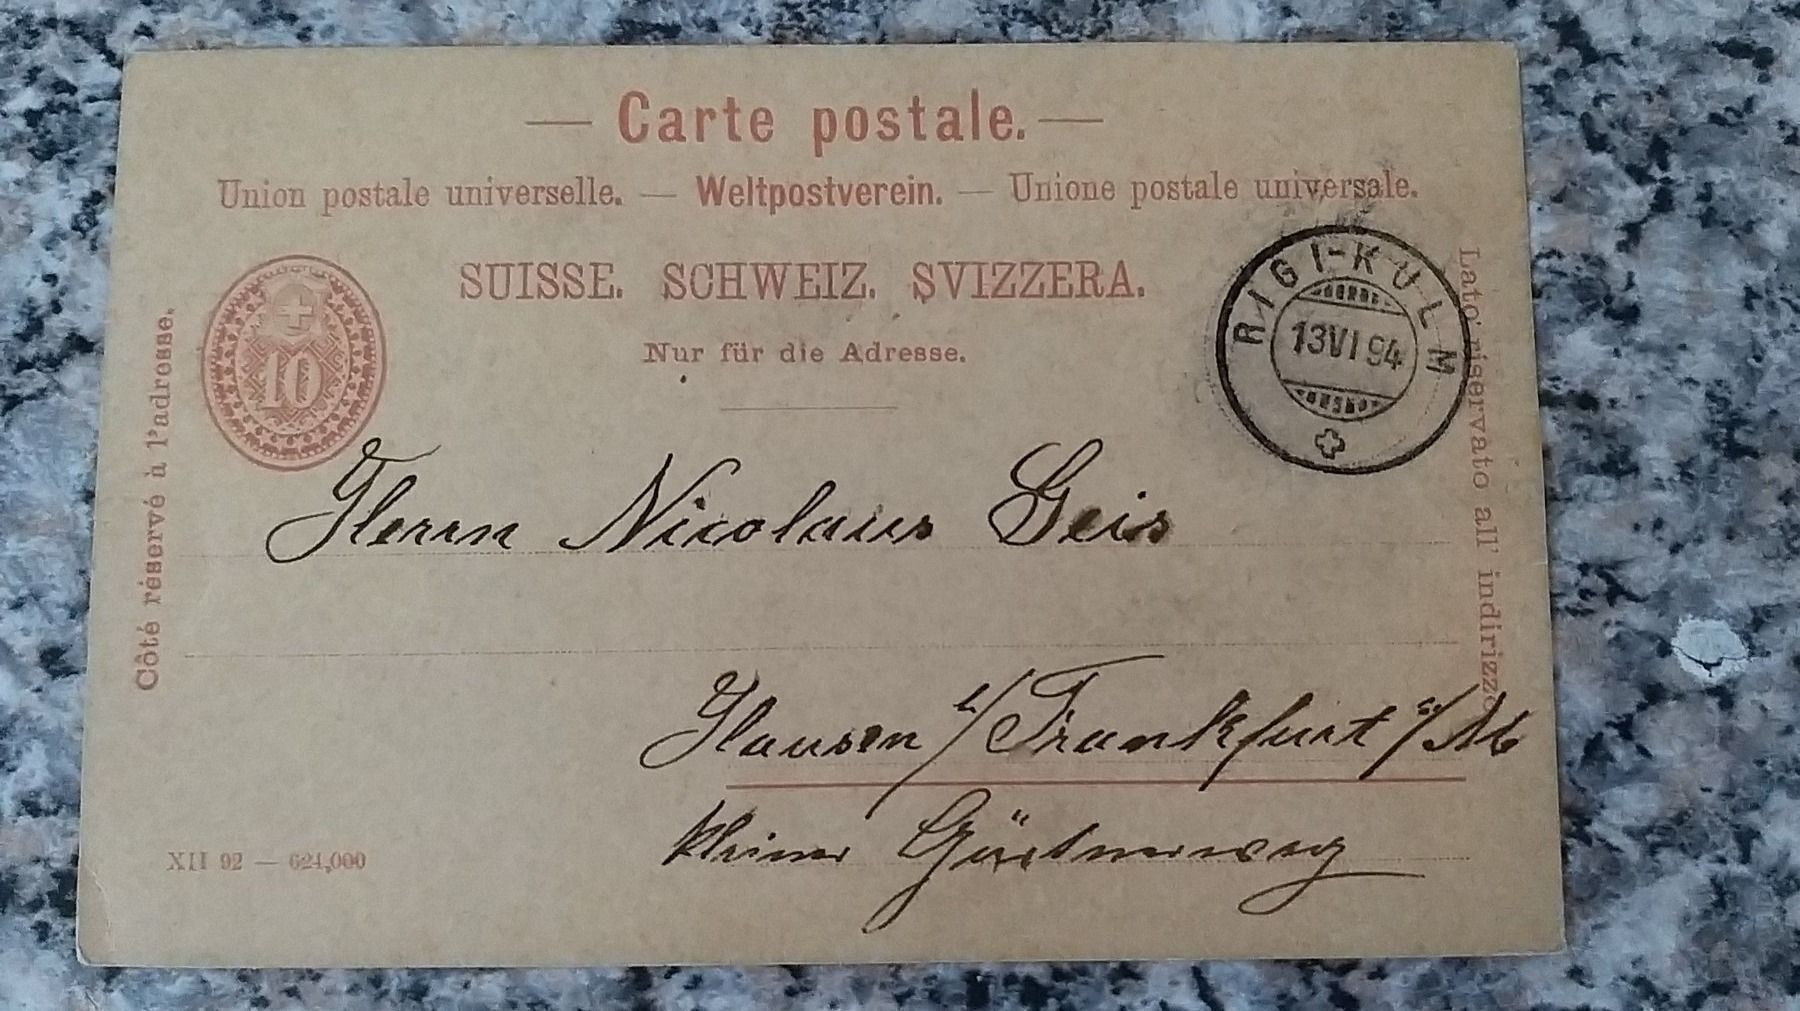 — Carte postale. —
Union postale universelle. — Weltpostverein. — Unione postale universale.
SUISSE. SCHWEIZ. SVIZZERA.
Nur für die Adresse.
10
RIGI-KULM
13 VI 94
Côté réservé à l'adresse.
Lato riservato all' indirizzo
Herrn Nicolaus Geis
Hausen b/Frankfurt a/M
kleiner Gärtnerweg
XII 92 — 624,000